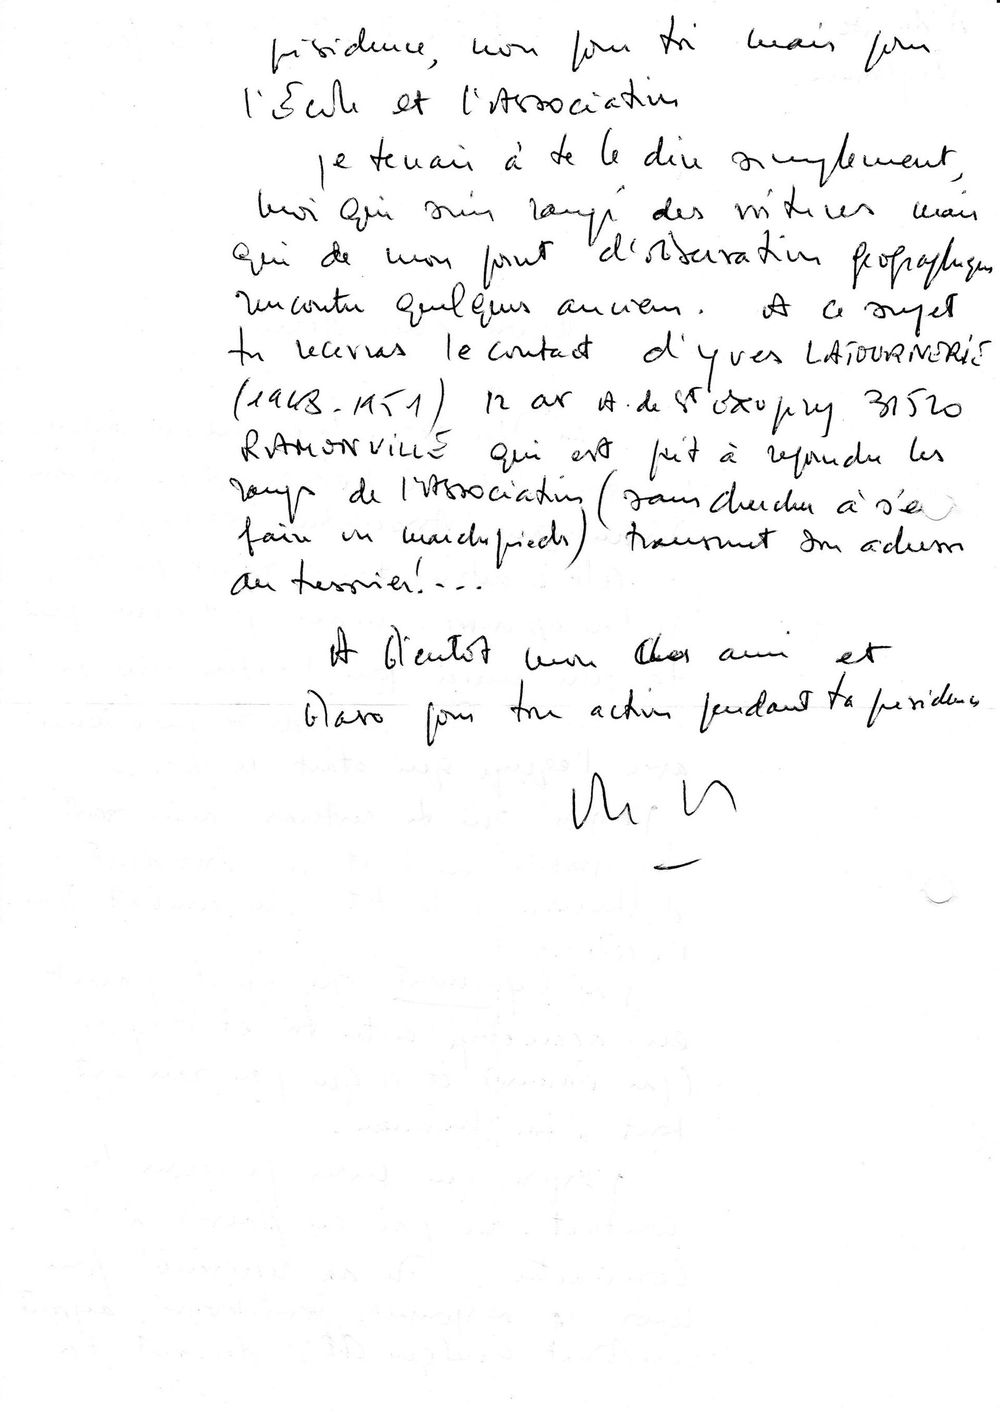 présidence, non pour toi mais pour
l'École et l'Association
je tenais à te le dire simplement,
moi qui suis rangé des voitures mais
qui de mon point d'observation géographique
rencontre quelques anciens. A ce sujet
tu recevras le contact d'Yves LATOURNERIE
(1948-1951) 12 av A. de St Exupéry 31520
RAMONVILLE qui est prêt à rejoindre les
rangs de l'Association (sans chercher à s'en
faire un marchepieds) transmet son adresse
au trésorier!...
A bientôt mon cher ami et
bravo pour ton action pendant ta présidence